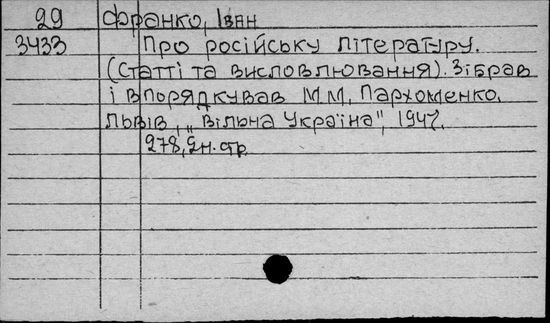 29 Франко, Іван
3433 Про російську літературу.
(Статті та висловлювання). Зібрав
і впорядкував М.М. Пархоменко.
Львів, „Вільна Україна", 1947.
278, 2н. стр.